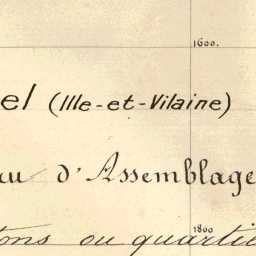 1600.
el (Ille-et-Vilaine)
au d'Assemblage
1800
tons ou quartie